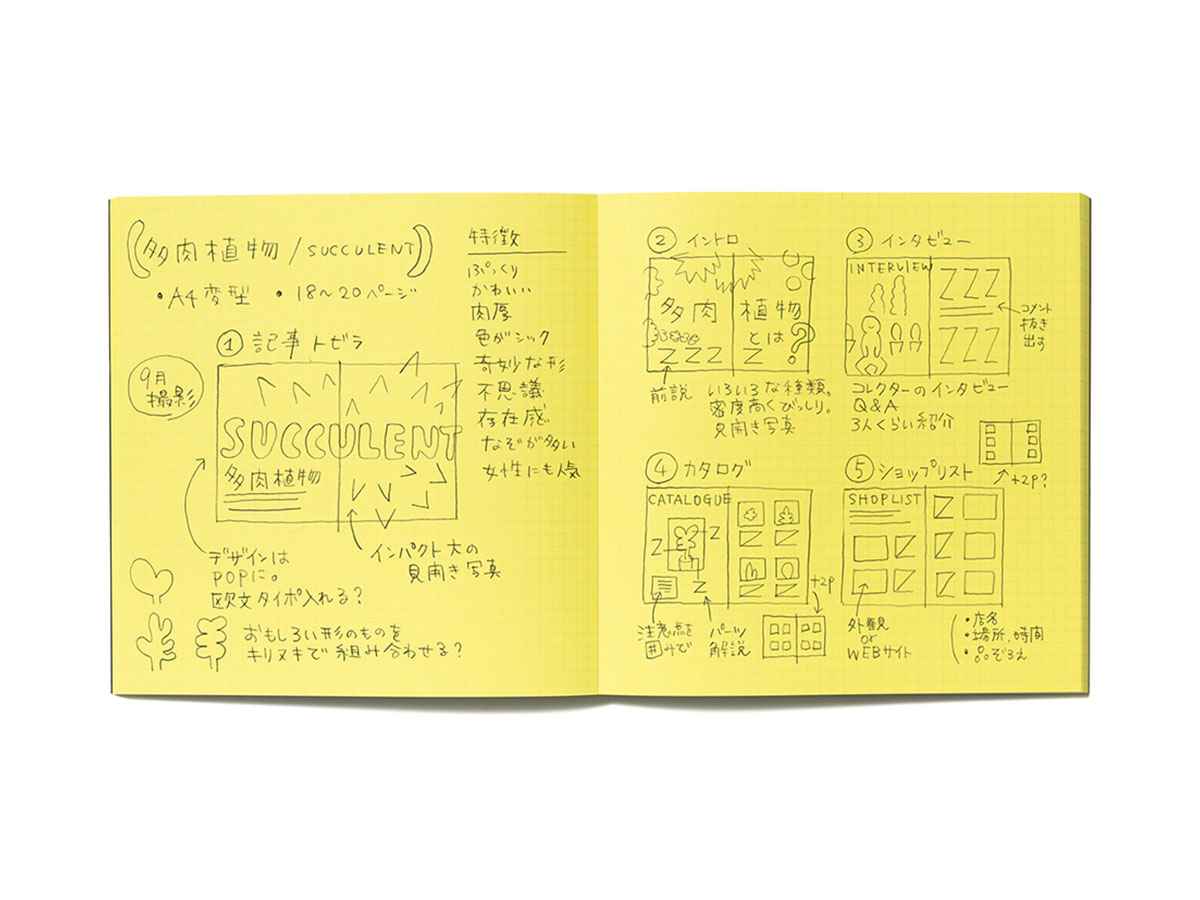 多肉植物/SUCCULENT
・A4変型 ・18〜20ページ
① 記事トビラ
9月
撮影
SUCCULENT
多肉植物
デザインは
POPに。
欧文タイポ入れる？
インパクト大の
見開き写真
おもしろい形のものを
キリヌキで組み合わせる？
特徴
ぷっくり
かわいい
肉厚
色がシック
奇妙な形
不思議
存在感
なぞが多い
女性にも人気
② イントロ
多肉植物
とは？
前説
いろいろな種類。
密度高くびっしり。
見開き写真
③ インタビュー
INTERVIEW
コメント
抜き
出す
コレクターのインタビュー
Q&A
3人くらい紹介
+2P?
④ カタログ
CATALOGUE
注意点を
囲みで
パーツ
解説
+2P
⑤ ショップリスト
SHOPLIST
外観
or
WEBサイト
・店名
・場所、時間
・品ぞろえ